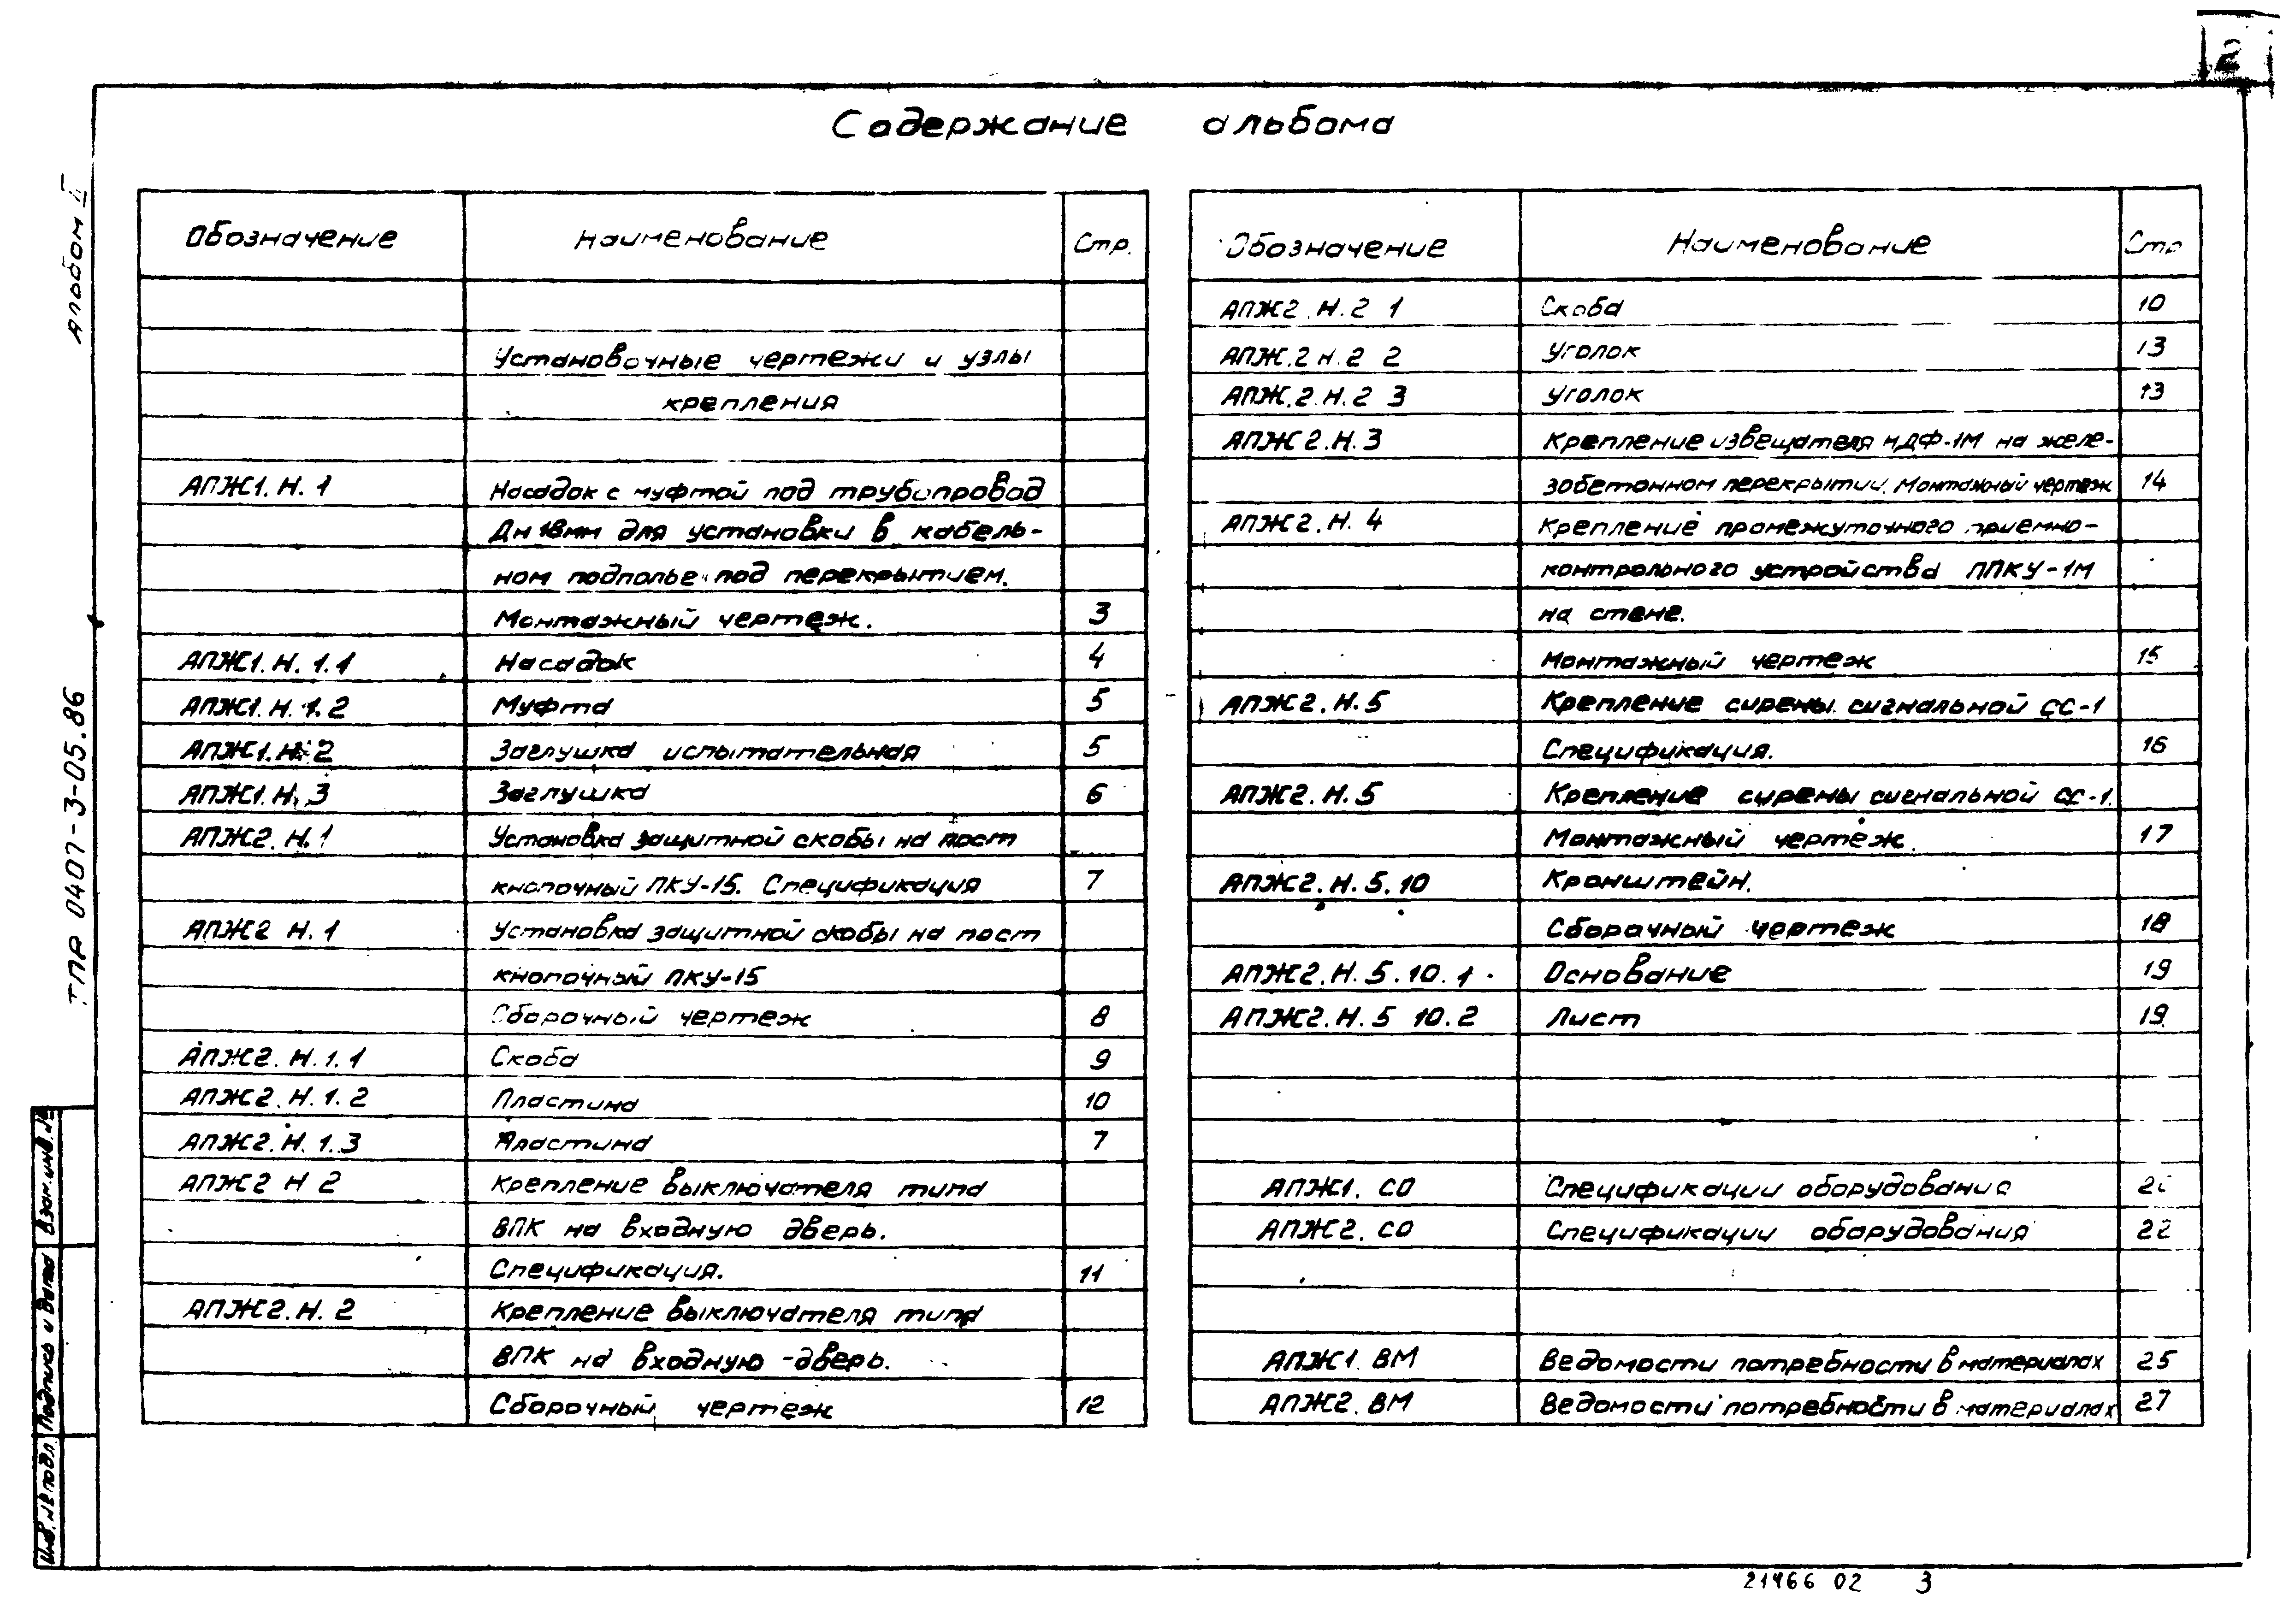 2
Содержание альбома
Альбом II
ТПР 0407-3-05.86
Взам. инв. №
Подпись и дата
Инв. № подл.
Обозначение Наименование Стр.
Установочные чертежи и узлы
крепления
АПЖ1.Н.1 Насадок с муфтой под трубопровод
Дн 18мм для установки в кабель-
ном подполье под перекрытием.
Монтажный чертеж. 3
АПЖ1.Н.1.1 Насадок 4
АПЖ1.Н.1.2 Муфта 5
АПЖ1.Н.2 Заглушка испытательная 5
АПЖ1.Н.3 Заглушка 6
АПЖ2.Н.1 Установка защитной скобы на пост
кнопочный ПКУ-15. Спецификация 7
АПЖ2 Н.1 Установка защитной скобы на пост
кнопочный ПКУ-15
Сборочный чертеж 8
АПЖ2.Н.1.1 Скоба 9
АПЖ2.Н.1.2 Пластина 10
АПЖ2.Н.1.3 Пластина 7
АПЖ2 Н 2 Крепление выключателя типа
ВПК на входную дверь.
Спецификация. 11
АПЖ2.Н.2 Крепление выключателя типа
ВПК на входную дверь.
Сборочный чертеж 12
Обозначение Наименование Стр
АПЖ2.Н.2 1 Скоба 10
АПЖ.2 Н.2 2 Уголок 13
АПЖ.2.Н.2 3 Уголок 13
АПЖ2.Н.3 Крепление извещателя ИДФ-1М на желе-
зобетонном перекрытии. Монтажный чертеж 14
АПЖ2.Н.4 Крепление промежуточного приемно-
контрольного устройства ППКУ-1М
на стене.
Монтажный чертеж 15
АПЖ2.Н.5 Крепление сирены сигнальной СС-1
Спецификация. 16
АПЖ2.Н.5 Крепление сирены сигнальной СС-1.
Монтажный чертеж. 17
АПЖ2.Н.5.10 Кронштейн.
Сборочный чертеж 18
АПЖ2.Н.5.10.1 Основание 19
АПЖ2.Н.5 10.2 Лист 19
АПЖ1. СО Спецификации оборудования
АПЖ2. СО Спецификации оборудования 22
АПЖ1. ВМ Ведомости потребности в материалах 25
АПЖ2. ВМ Ведомости потребности в материалах 27
21466 02 3